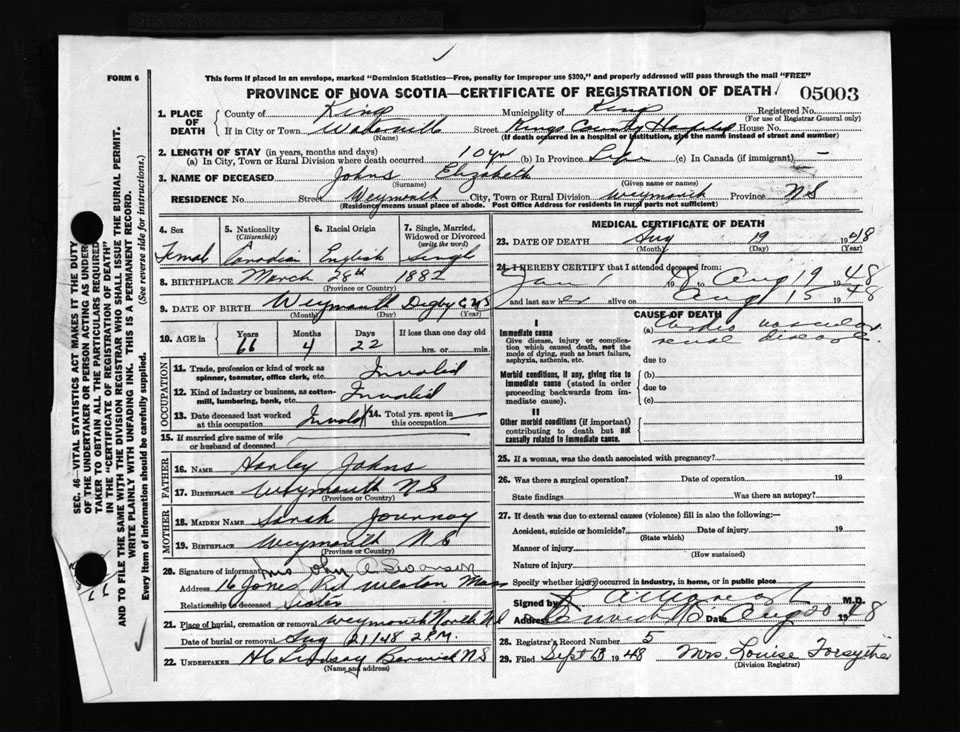 FORM 6
This form if placed in an envelope, marked "Dominion Statistics—Free, penalty for improper use $300," and properly addressed will pass through the mail "FREE"
PROVINCE OF NOVA SCOTIA—CERTIFICATE OF REGISTRATION OF DEATH 05003
1. PLACE OF DEATH
County of Kings Municipality of Kings Registered No.
(For use of Registrar General only)
If in City or Town Waterville Street Kings County Hospital House No.
(Name) (If death occurred in a hospital or institution, give the name instead of street and number)
2. LENGTH OF STAY (in years, months and days)
(a) In City, Town or Rural Division where death occurred 10 yr (b) In Province Life (c) In Canada (if immigrant) —
3. NAME OF DECEASED Johns Elizabeth
(Surname) (Given name or names)
RESIDENCE No. Street Weymouth City, Town or Rural Division Weymouth Province NS
(Residence means usual place of abode. Post Office Address for residents in rural parts not sufficient)
4. Sex 5. Nationality (Citizenship) 6. Racial Origin 7. Single, Married, Widowed or Divorced (write the word)
Femal Canadian English Single
8. BIRTHPLACE March 28th 1882
(Province or Country)
9. DATE OF BIRTH Weymouth Digby Co NS
(Month) (Day) (Year)
10. AGE in Years Months Days If less than one day old
66 4 22 hrs. or min.
OCCUPATION
11. Trade, profession or kind of work as spinner, teamster, office clerk, etc. Invalid
12. Kind of industry or business, as cotten-mill, lumbering, bank, etc. Invalid
13. Date deceased last worked at this occupation Invalid 14. Total yrs. spent in this occupation —
15. If married give name of wife or husband of deceased
FATHER
16. NAME Hanley Johns
17. BIRTHPLACE Weymouth NS
(Province or Country)
MOTHER
18. MAIDEN NAME Sarah Journay
19. BIRTHPLACE Weymouth NS
(Province or Country)
20. Signature of informant Mrs John A Swansen
Address 16 Jones Rd Weston Mass
Relationship to deceased Sister
21. Place of burial, cremation or removal Weymouth North NS
Date of burial or removal Aug 21/48 2 P.M.
22. UNDERTAKER H C Lindsay Berwick NS
(Name and address)
MEDICAL CERTIFICATE OF DEATH
23. DATE OF DEATH Aug 19 1948
(Month) (Day) (Year)
24. I HEREBY CERTIFY that I attended deceased from:
Jan 1 1948 to Aug 19 48
and last saw her alive on Aug 15 1948
CAUSE OF DEATH
I
Immediate cause (a) Cardio vascular
Give disease, injury or complication which caused death, not the mode of dying, such as heart failure, asphyxia, asthenia, etc.
renal disease.
due to
Morbid conditions, if any, giving rise to immediate cause (stated in order proceeding backwards from immediate cause).
(b)
due to
(c)
II
Other morbid conditions (if important) contributing to death but not causally related to immediate cause.
25. If a woman, was the death associated with pregnancy?
26. Was there a surgical operation? Date of operation 19
State findings Was there an autopsy?
27. If death was due to external causes (violence) fill in also the following:—
Accident, suicide or homicide? Date of injury 19
(State which)
Manner of injury
(How sustained)
Nature of injury
Specify whether injury occurred in industry, in home, or in public place
Signed by M.D.
Address Berwick NS Date Aug 20 1948
28. Registrar's Record Number 5
29. Filed Sept 13 1948 Mrs. Louise Forsythe
(Division Registrar)
SEC. 46—VITAL STATISTICS ACT MAKES IT THE DUTY
OF THE UNDERTAKER OR PERSON ACTING AS UNDER-
TAKER TO OBTAIN ALL THE PARTICULARS REQUIRED
IN THE "CERTIFICATE OF REGISTRATION OF DEATH"
AND TO FILE THE SAME WITH THE DIVISION REGISTRAR WHO SHALL ISSUE THE BURIAL PERMIT.
WRITE PLAINLY WITH UNFADING INK. THIS IS A PERMANENT RECORD.
Every item of information should be carefully supplied. (See reverse side for instructions.)